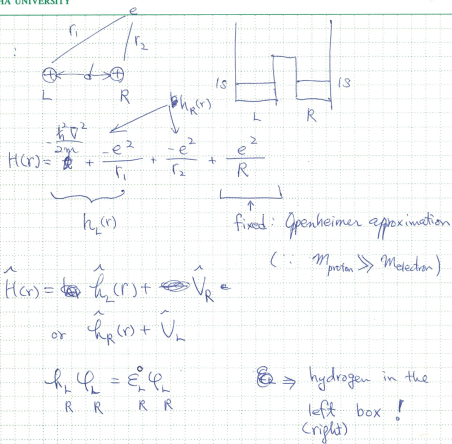 HA UNIVERSITY
e
r₁ r₂
:
⊕ d ⊕
L R
1S 1S
L R
h_R(r)
H(r) = -ħ²∇²/2m + -e²/r₁ + -e²/r₂ + e²/R
h_L(r)
fixed: Openheimer approximation
(∵ m_proton ≫ m_electron)
Ĥ(r) = ĥ_L(r) + V̂_R
or ĥ_R(r) + V̂_L
h_L φ_L = ε°_L φ_L
R R R R
⇒ hydrogen in the
left box !
(right)